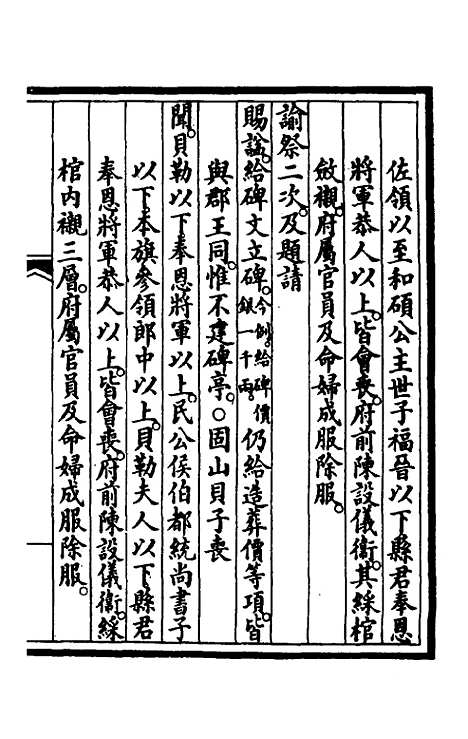 佐領以至和碩公主世子福晉以下縣君奉恩
將軍恭人以上。皆會喪。府前陳設儀衞。其綵棺
斂襯。府屬官員及命婦成服除服。
諭祭二次。及題請
賜諡。給碑文立碑。今例。給碑價銀一千兩。仍給造葬價等項。皆
與郡王同。惟不建碑亭。○固山貝子喪
聞。貝勒以下奉恩將軍以上。民公侯伯都統尚書子
以下本旗參領郎中以上。貝勒夫人以下縣君
奉恩將軍恭人以上。皆會喪。府前陳設儀衞。綵
棺內襯三層。府屬官員及命婦成服除服。